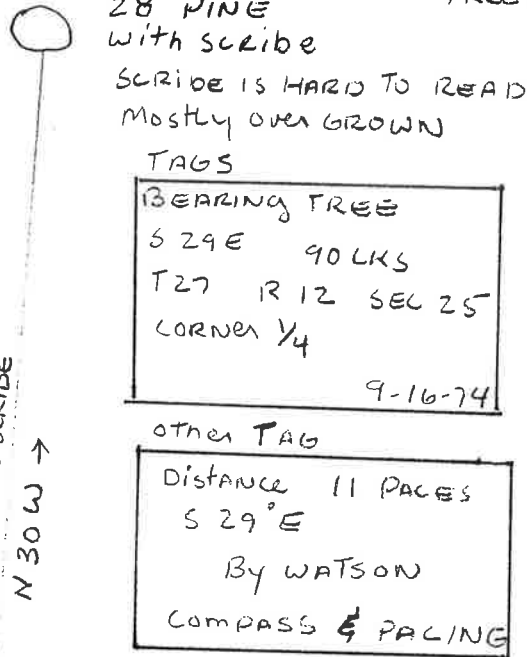 28 PINE
TREE
with scribe
SCRIBE IS HARD TO READ
Mostly over GROWN
TAGS
BEARING TREE
S 29 E 90 LKS
T27 R 12 SEC 25
CORNER 1/4
9-16-74
other TAG
Distance 11 PACES
S 29° E
By WATSON
COMPASS & PACING
SCRIBE
N 30 W →